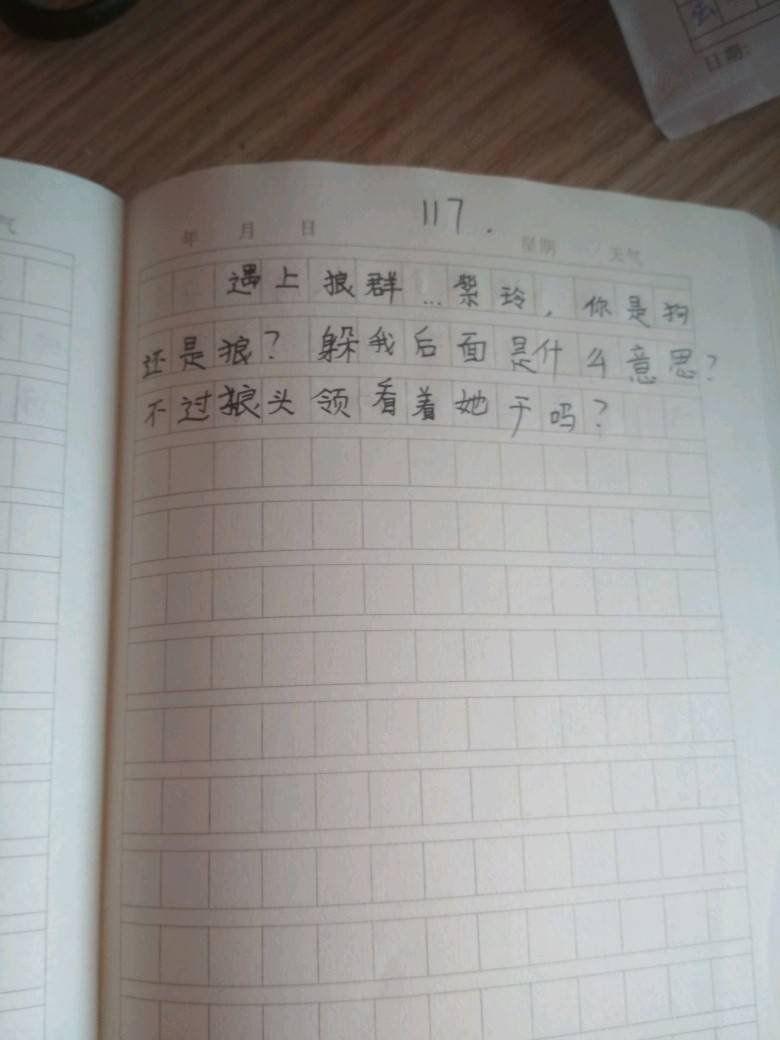 去
日期:
气
117.
年 月 日 星期 天气
遇上狼群…紫玲，你是狗
还是狼？躲我后面是什么意思？
不过狼头领看着她干吗？